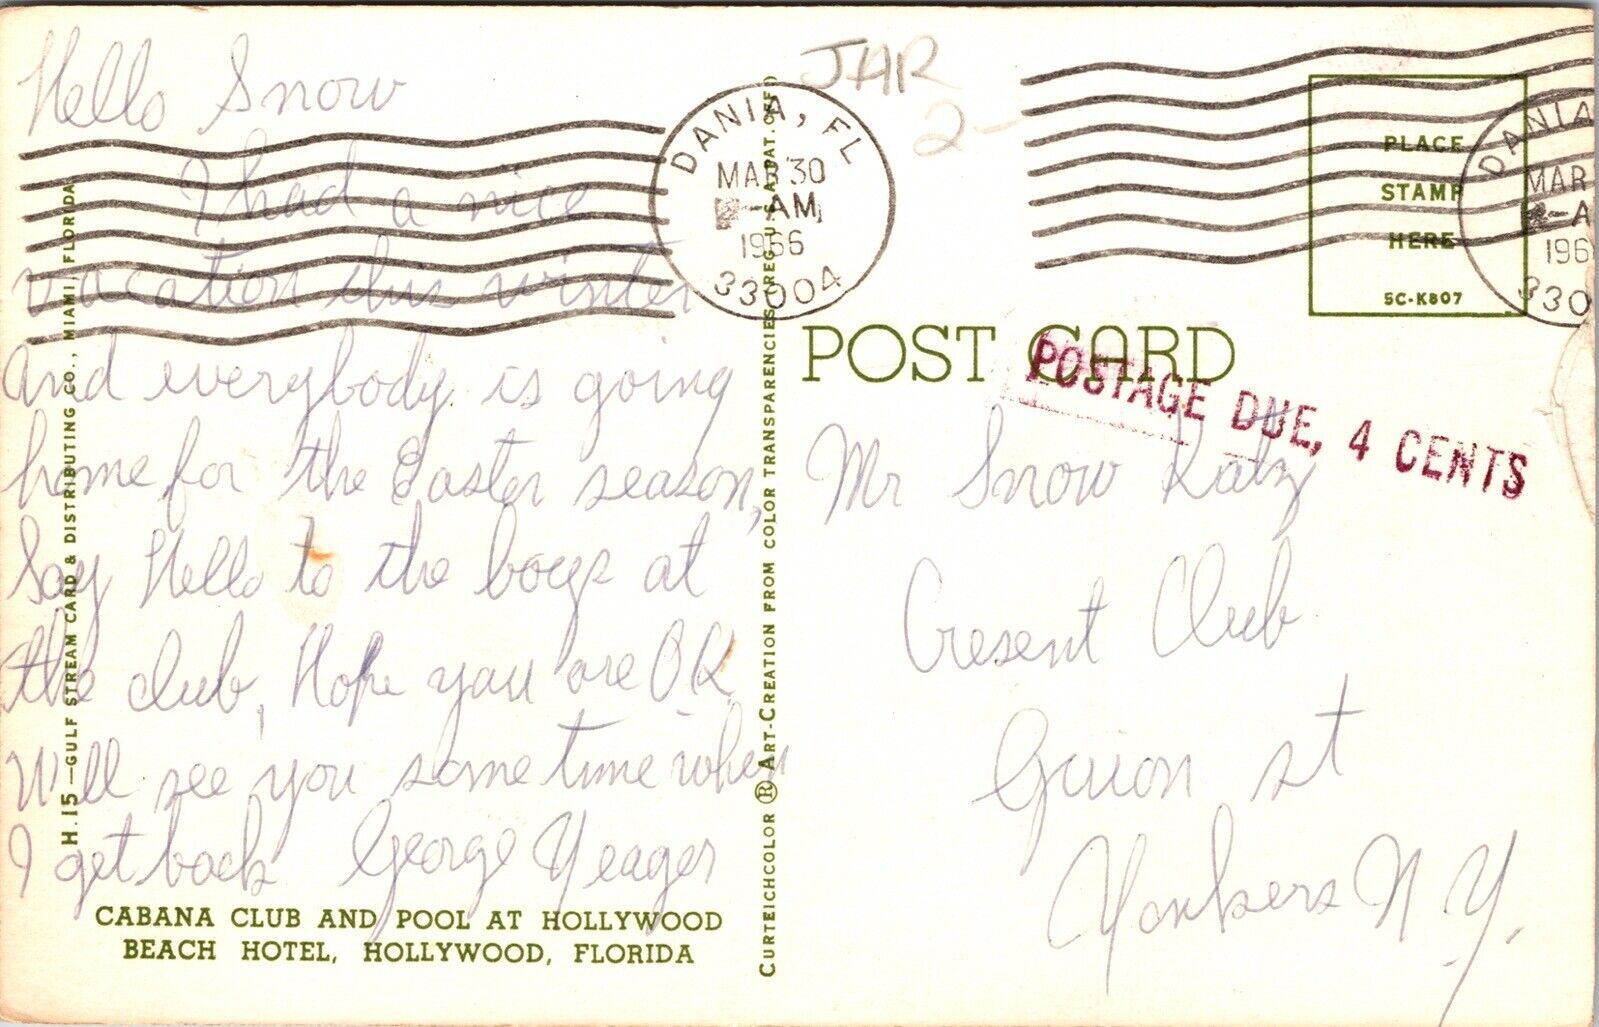 Hello Snow
I had a nice
vacation this winter
and everybody is going
home for the Easter season,
Say Hello to the boys at
the club, Hope you are OK.
Will see you some time when
I get back George Yeager
CABANA CLUB AND POOL AT HOLLYWOOD
BEACH HOTEL, HOLLYWOOD, FLORIDA
H. 15—GULF STREAM CARD & DISTRIBUTING CO., MIAMI, FLORIDA
DANIA, FL
MAR 30
-AM
1966
33004
JAR
2-
CURTEICHCOLOR ® ART-CREATION FROM COLOR TRANSPARENCIES (REG. U.S.A. PAT. OFF.)
PLACE
STAMP
HERE
5C-K807
DANIA
MAR
-A
196
330
POST CARD
POSTAGE DUE, 4 CENTS
Mr Snow Katz
Cresent Club
Guion st
Yonkers N.Y.